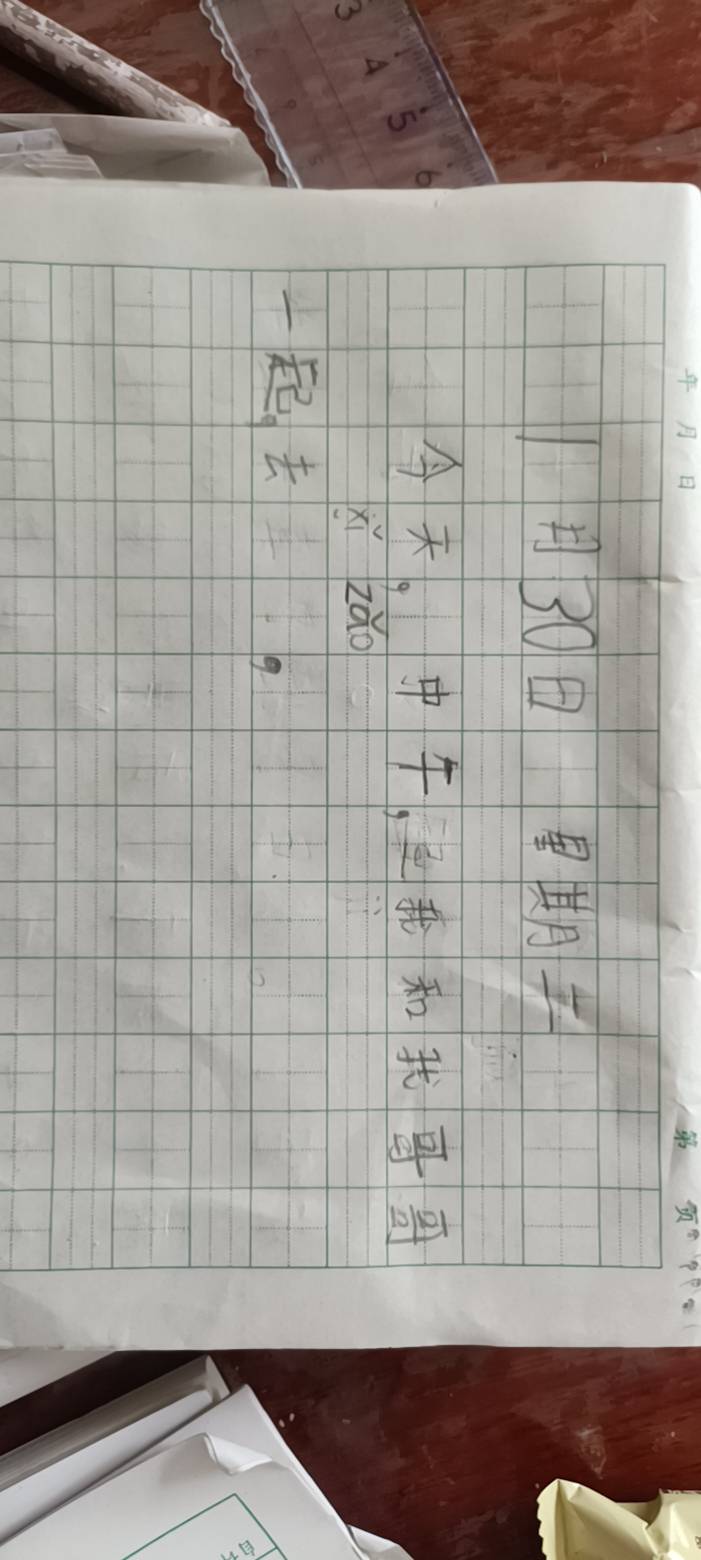 年 月 日
第 页
1月30日 星期二
今天,中午,我和我哥哥
xǐ zǎo
一起,去,
3 4 5 6